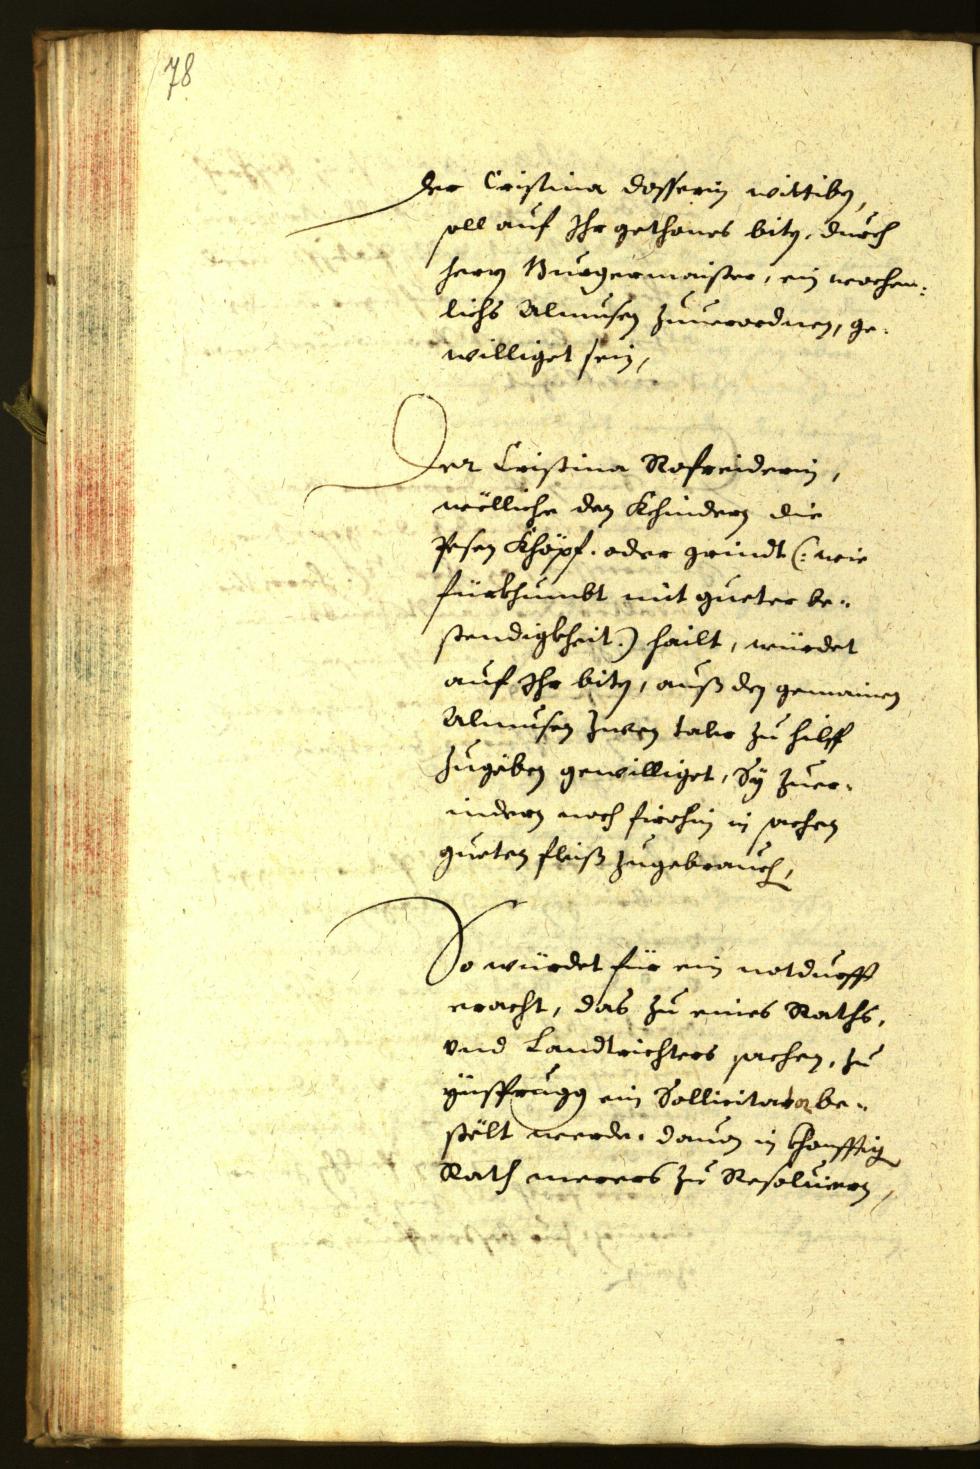 78
Der Cristina Dosserin wittiben,
soll auf Ihr gethones biten, durch
herrn Burgermaister, ein wochen„
lichs Almusen zuuerordnen, ge„
williget sein,
Der Cristina Rofreiderin,
wölliche den Khindern die
Pesen Khöpf. oder grindt (: wie
fürkhumbt mit gueter be„
stendigkheit.) hailt, würdet
auf Ihr biten, auß den gemainen
Almusen zwen taler zu hilff
zugeben gewilliget, Sy zuer„
indern noch firohin in sachen
gueten fleiß zugebrauch,
So würdet für ein notdurfft
eracht, das zu eines Raths,
vnd Landtrichters sachen, zu
Ynsprugg ein Sollicitator be„
stölt werde. dauon in khonfftig
Rath merers zu Resoluiern,